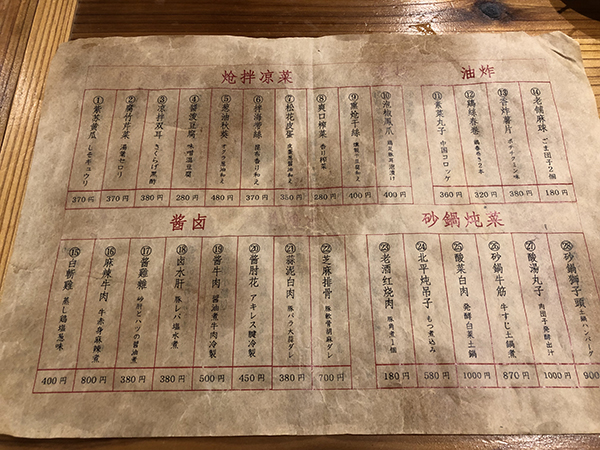 炝拌凉菜
①紫苏黄瓜 しそキュウリ 370円
②腐竹芹菜 湯葉セロリ 370円
③凉拌双耳 きくらげ黒酢 380円
④醤溌豆腐 味噌温豆腐 280円
⑤葱油秋葵 オクラ葱油和え 480円
⑥拌海帯絲 昆布香り和え 370円
⑦松花皮蛋 皮蛋葱醤油和え 350円
⑧爽口榨菜 香り搾菜 280円
⑨熏熗干絲 燻製干豆腐和え 400円
⑩泡椒鳳爪 400円
油炸
⑪素菜丸子 中国コロッケ 360円
⑫鶏絲春巻 鶏春巻き2本 320円
⑬香炸薯片 ポテトクミン味 380円
⑭老铺麻球 ごま団子2個 180円
酱卤
⑮白斬雞 蒸し鶏塩葱味 400円
⑯麻辣牛肉 牛赤身麻辣煮 800円
⑰醤雞雑 砂肝とハツの醤油煮 380円
⑱卤水肝 豚レバ塩水煮 380円
⑲醤牛肉 醤油煮牛肉冷製 500円
⑳醤肘花 アキレス腱冷製 450円
㉑蒜泥白肉 豚バラ大蒜ダレ 380円
㉒芝麻排骨 豚軟骨胡麻ダレ 700円
砂鍋炖菜
㉓老酒红烧肉 豚角煮1個 180円
㉔北平炖吊子 もつ煮込み 580円
㉕酸菜白肉 発酵白菜土鍋 1000円
㉖砂鍋牛筋 牛すじ土鍋煮 870円
㉗酸湯丸子 肉団子発酵出汁 1000円
㉘砂鍋獅子頭 土鍋ハンバーグ 900